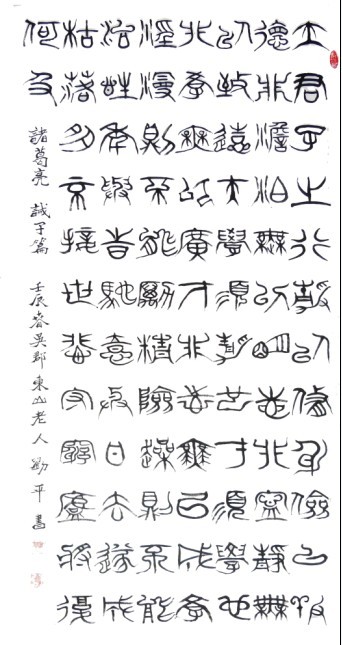 夫君子之行靜以修身儉以養
德非澹泊無以明志非寧靜無
以致遠夫學須靜也才須學也
非學無以廣才非志無以成學
淫慢則不能勵精險躁則不能
治性年與時馳意與日去遂成
枯落多不接世悲守窮廬將復
何及
諸葛亮 誡子篇 壬辰春吳郡東山老人 平書